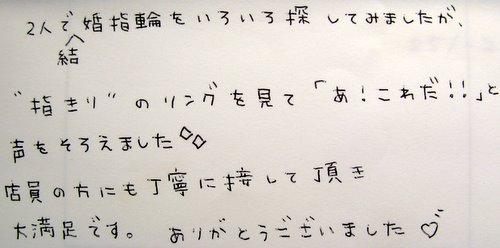 2人で結婚指輪をいろいろ探してみましたが、
"指きり"のリングを見て「あ!これだ!!」と
声をそろえました◇◇
店員の方にも丁寧に接して頂き
大満足です。 ありがとうございました♡